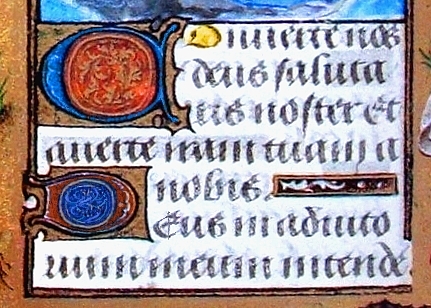 Conuerte nos
deus saluta
ris noster et
auerte iram tuam a
nobis.
DEus in adiuto
rium meum intende.